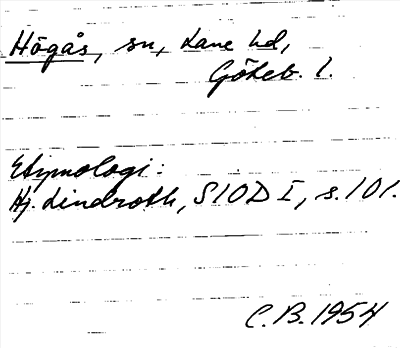 Högås, sn, Lane hd,
Göteb. l.
Etymologi:
Hj. Lindroth, SIOD I, s. 101.
C.B. 1954